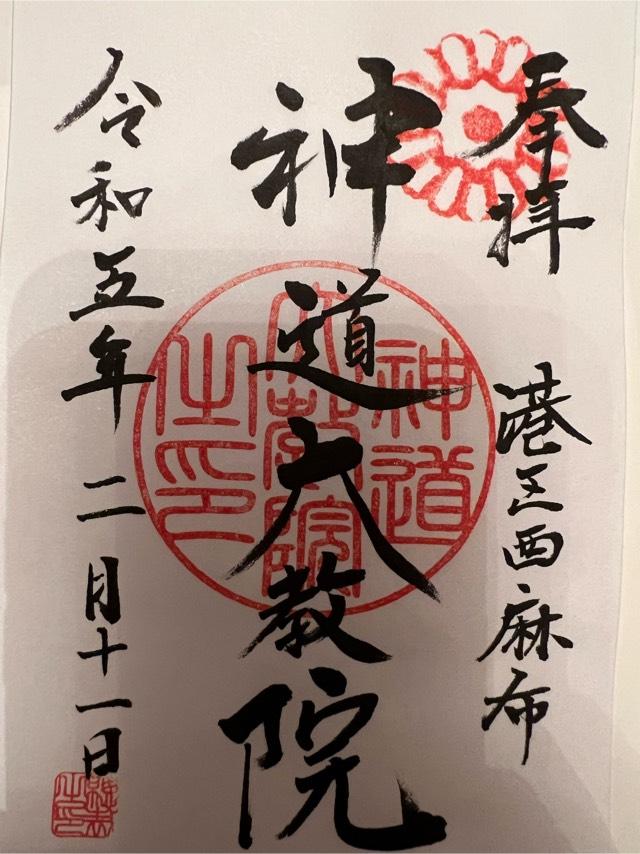 奉拝
港区西麻布
神道大教院
神道
大教院
之印
令和五年二月十一日